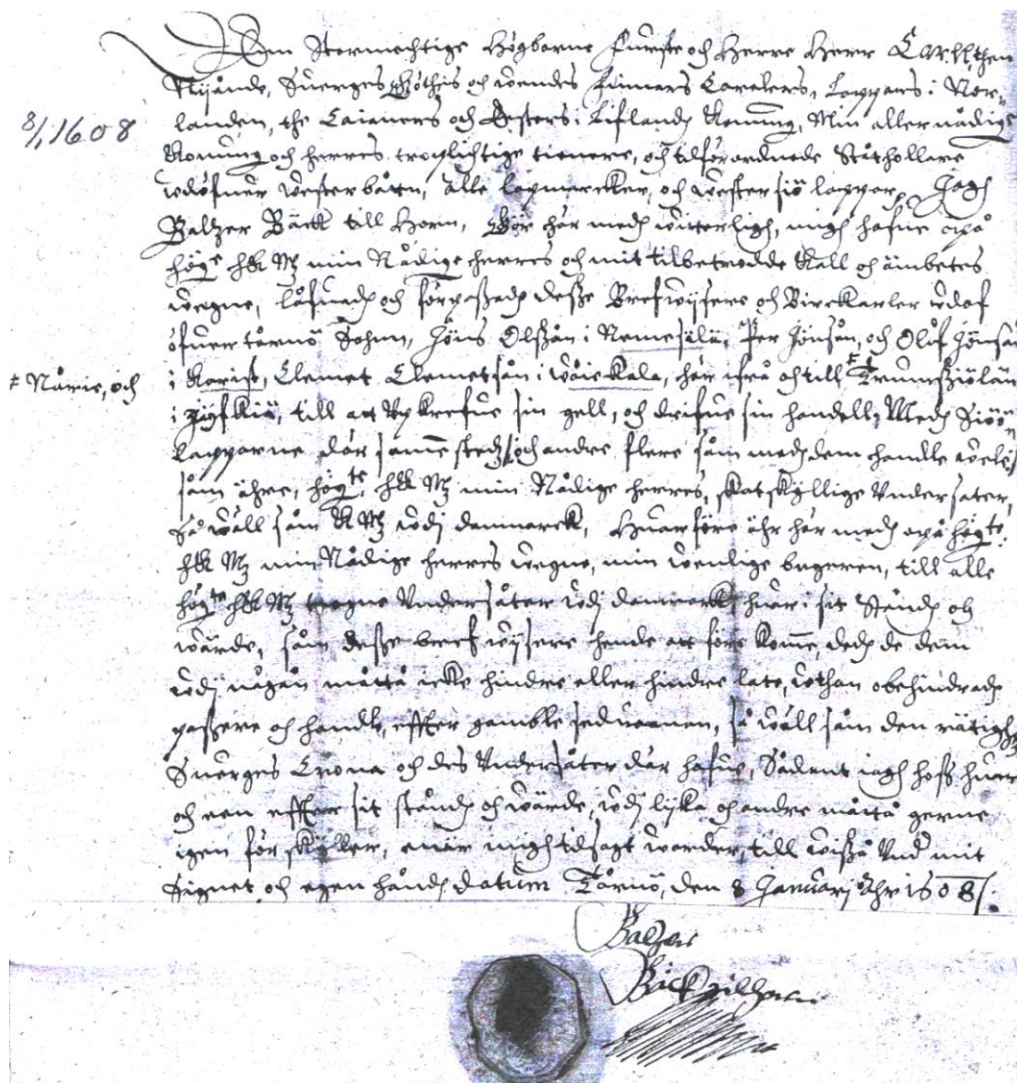 Den Stormechtige Högborne Furste och Herre Herr Carll then
Nijånde, Sueriges Göthes och Wendes Finnars Carelers, Lappars i Nor-
8/1 1608
landen, the Caianers och Esters i Lifland Konung, Min aller nådige
Konung och herres troplichtige tienere, och tilförordnede Ståthollare
Wester båtn, alle lapmarcker, och wester siö lappar, Jagh
Baltzer Bäck till Horn, Gör här medh witterligh, migh hafue opå
högte H K M min Nådige herres och mit tilbetrodde kall och ämbetes
wegne, låfuadh och förpassadh desse Brefwijsere och Birckarler
öfuer tårnö Sohn, Jöns Olsson i Remesälä, Per Jönsån, och Olåf Jönsån
i Clemet Clemetsån i här ifrå och till
Nårie, och
i till att Vpkrefue sin gell, och drifue sin handell, Medh Siöö
lapparne där samme stedz, och andre flere såm medh dem handle
såm ähre, högte H K M min Nådige herres, skatskyllige Vndersåter,
Så wäll såm K M wdj danmarck, Huarföre ähr här medh opå högte
H K M min Nådige herres wegne, min wenlige begeren, till alle
högte H K M trogne Vndersåter wdj danmarck huar i sit Ståndh och
wärde, såm desse brefwijsere hende att före komme, dedh de dem
wdj någån måtto icke hindre eller hindre late, Vthan obehindradh
passere och handle, effter gamble seduaanan, så wäll såm den rätighet
Sueriges Crona och des Vndersåter där hafue, Sådant iagh hoss huar
och een effter sit ståndh och wärde, wdj lijka och andre måtto gerne
igen förskyller, när migh tilsagt warder, till wisso Vnd mit
Signet och egen håndh datum Tårnö, den 8 Januarj Åhr 1608
Baltzar
Bäck till Horn